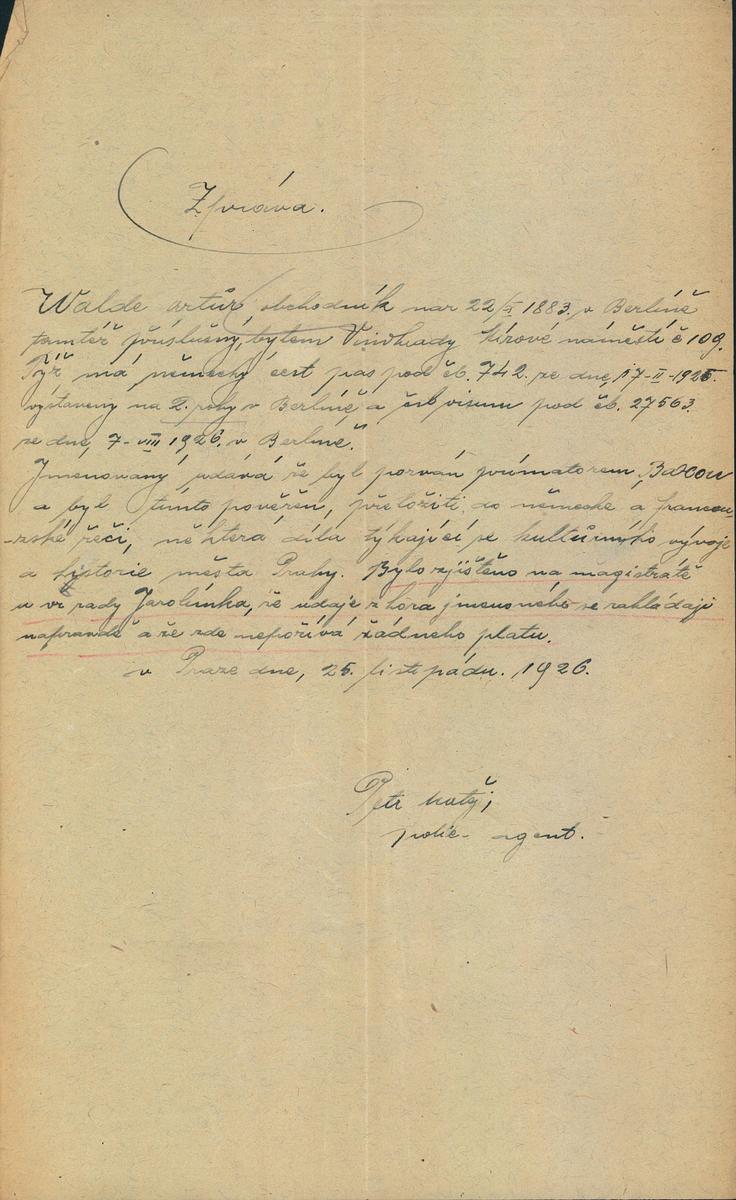 Zpráva.
Walde Artur, obchodník nar 22/X 1883. v Berlíně
tamtéž příslušný, bytem Vinohrady Mírové náměstí č 109.
Týž má německý cest pas pod čís. 742. ze dne, 17-II-1925.
vystavený na 2. roky v Berlíně, a čsl visum pod čís. 27563.
ze dne, 7-VIII 1926. v Berlíně.
Jmenovaný udává že byl pozván primátorem, Baxou
a byl tímto pověřen, přeložiti do německé a francou-
-zské řeči, některá díla týkající se kulturního vývoje
a historie města Prahy. Bylo zjištěno na magistrátě
u vr. rady Jarolímka, že udaje shora jmenoného se zakládají
na pravdě a že zde nepožívá žádného platu.
v Praze dne, 25. listopádu. 1926.
Petr Matěj,
polic- agent.